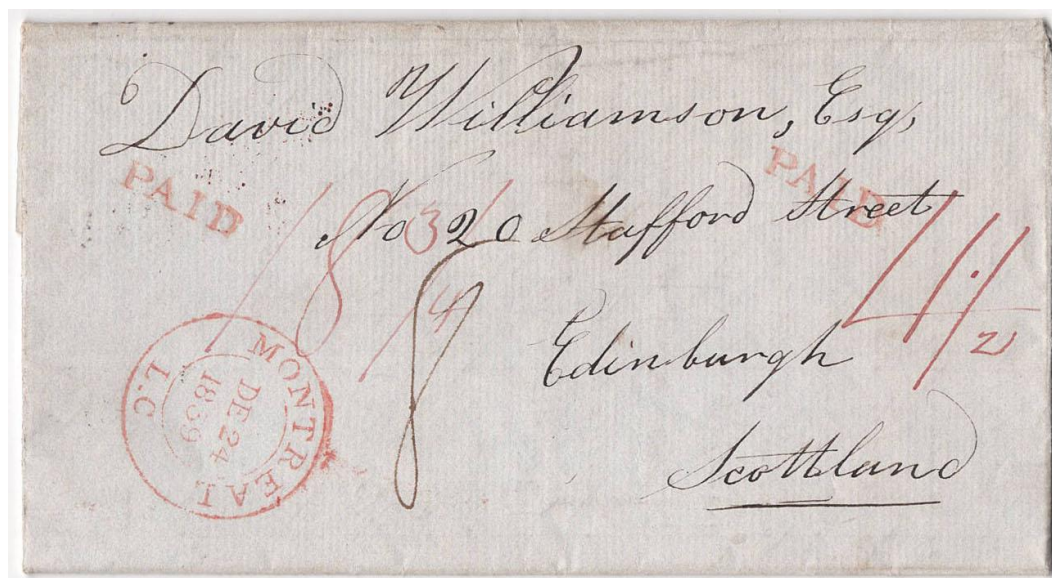 David Williamson, Esq,
PAID
PAID
No 20 Stafford Street
Edinburgh
Scottland
MONTREAL
L.C
DE 24
1839
8